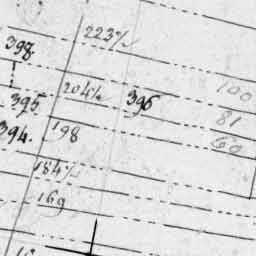 223½
398.
100
204½
395
396
81
394.
198
60
184½
169